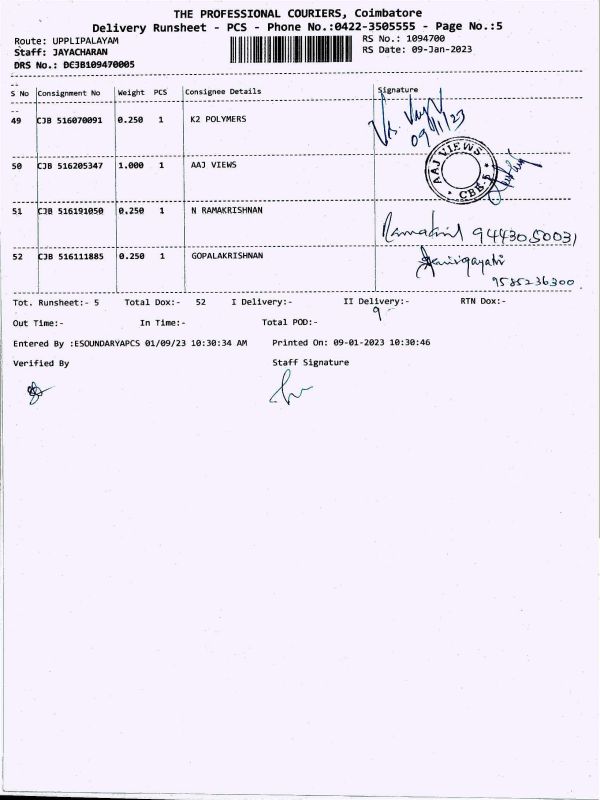 THE PROFESSIONAL COURIERS, Coimbatore
Delivery Runsheet - PCS - Phone No.:0422-3505555 - Page No.:5
Route: UPPLIPALAYAM
RS No.: 1094700
Staff: JAYACHARAN
RS Date: 09-Jan-2023
DRS No.: DCJB109470005
S No Consignment No Weight PCS Consignee Details Signature
49 CJB 516070091 0.250 1 K2 POLYMERS
09/1/23
50 CJB 516205347 1.000 1 AAJ VIEWS
AAJ VIEWS
CBE-5
51 CJB 516191050 0.250 1 N RAMAKRISHNAN
9443050031
52 CJB 516111885 0.250 1 GOPALAKRISHNAN
9585236300
Tot. Runsheet:- 5 Total Dox:- 52 I Delivery:- II Delivery:- RTN Dox:-
9
Out Time:- In Time:- Total POD:-
Entered By :ESOUNDARYAPCS 01/09/23 10:30:34 AM Printed On: 09-01-2023 10:30:46
Verified By Staff Signature